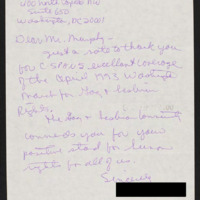 400 North Capitol NW
Suite 650
Washington, DC 20001
Dear Mr. Murphy -
Just a note to thank you
for C-SPAN's excellent coverage
of the April 1993 Washington
March for Gay & Lesbian
Rights.
The Gay & Lesbian Community
commends you for your
positive stand for human
rights for all of us.
Sincerely